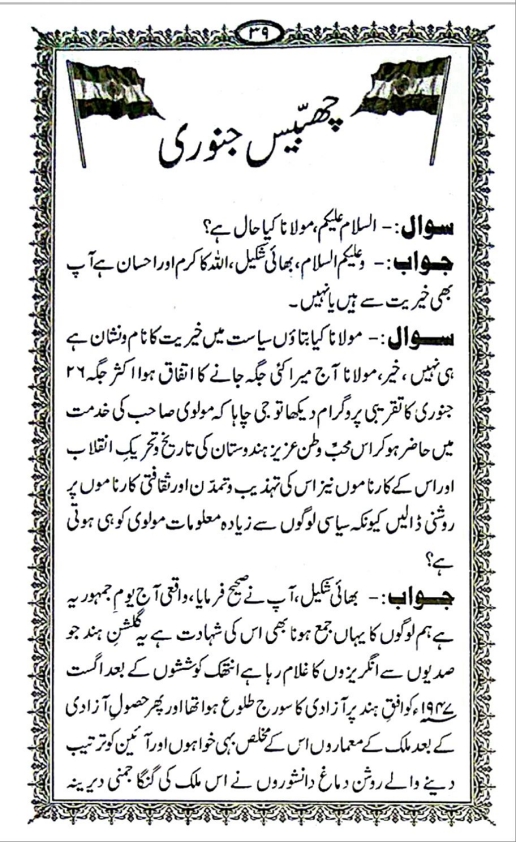 ۳۹
چھبّیس جنوری
سوال:- السلام علیکم، مولانا کیا حال ہے؟
جواب:- وعلیکم السلام، بھائی شکیل، اللہ کا کرم اور احسان ہے آپ
بھی خیریت سے ہیں یا نہیں۔
سوال:- مولانا کیا بتاؤں سیاست میں خیریت کا نام و نشان ہے
ہی نہیں، خیر، مولانا آج میرا کئی جگہ جانے کا اتفاق ہوا اکثر جگہ ۲۶
جنوری کا تقریبی پروگرام دیکھا تو جی چاہا کہ مولوی صاحب کی خدمت
میں حاضر ہو کر اس محبّ وطن عزیز ہندوستان کی تاریخ و تحریکِ انقلاب
اور اس کے کارناموں نیز اس کی تہذیب و تمدّن اور ثقافتی کارناموں پر
روشنی ڈالیں کیونکہ سیاسی لوگوں سے زیادہ معلومات مولوی کو ہی ہوتی
ہے؟
جواب:- بھائی شکیل، آپ نے صحیح فرمایا، واقعی آج یومِ جمہوریہ
ہے ہم لوگوں کا یہاں جمع ہونا بھی اس کی شہادت ہے یہ گلشنِ ہند جو
صدیوں سے انگریزوں کا غلام رہا ہے انتھک کوششوں کے بعد اگست
۱۹۴۷ء کو افقِ ہند پر آزادی کا سورج طلوع ہوا تھا اور پھر حصولِ آزادی
کے بعد ملک کے معماروں اس کے مخلص بہی خواہوں اور آئین کو ترتیب
دینے والے روشن دماغ دانشوروں نے اس ملک کی گنگا جمنی دیرینہ